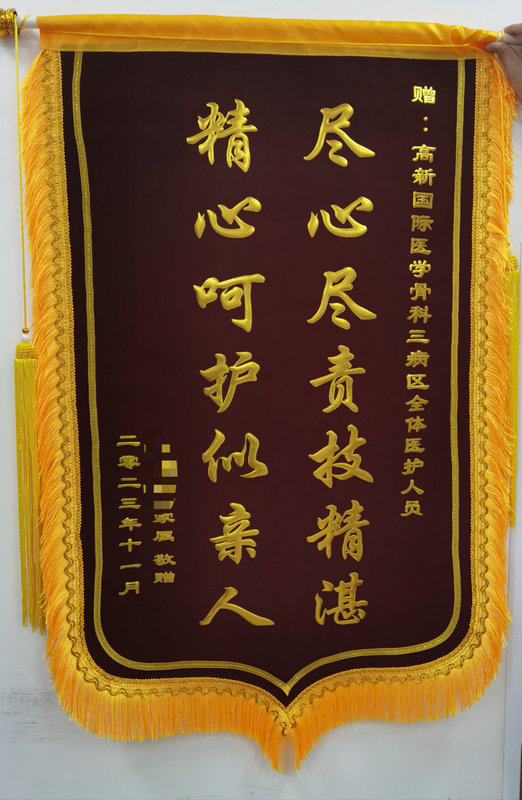 赠：高新国际医学骨科三病区全体医护人员
尽心尽责技精湛
精心呵护似亲人
家属 敬赠
二零二三年十一月